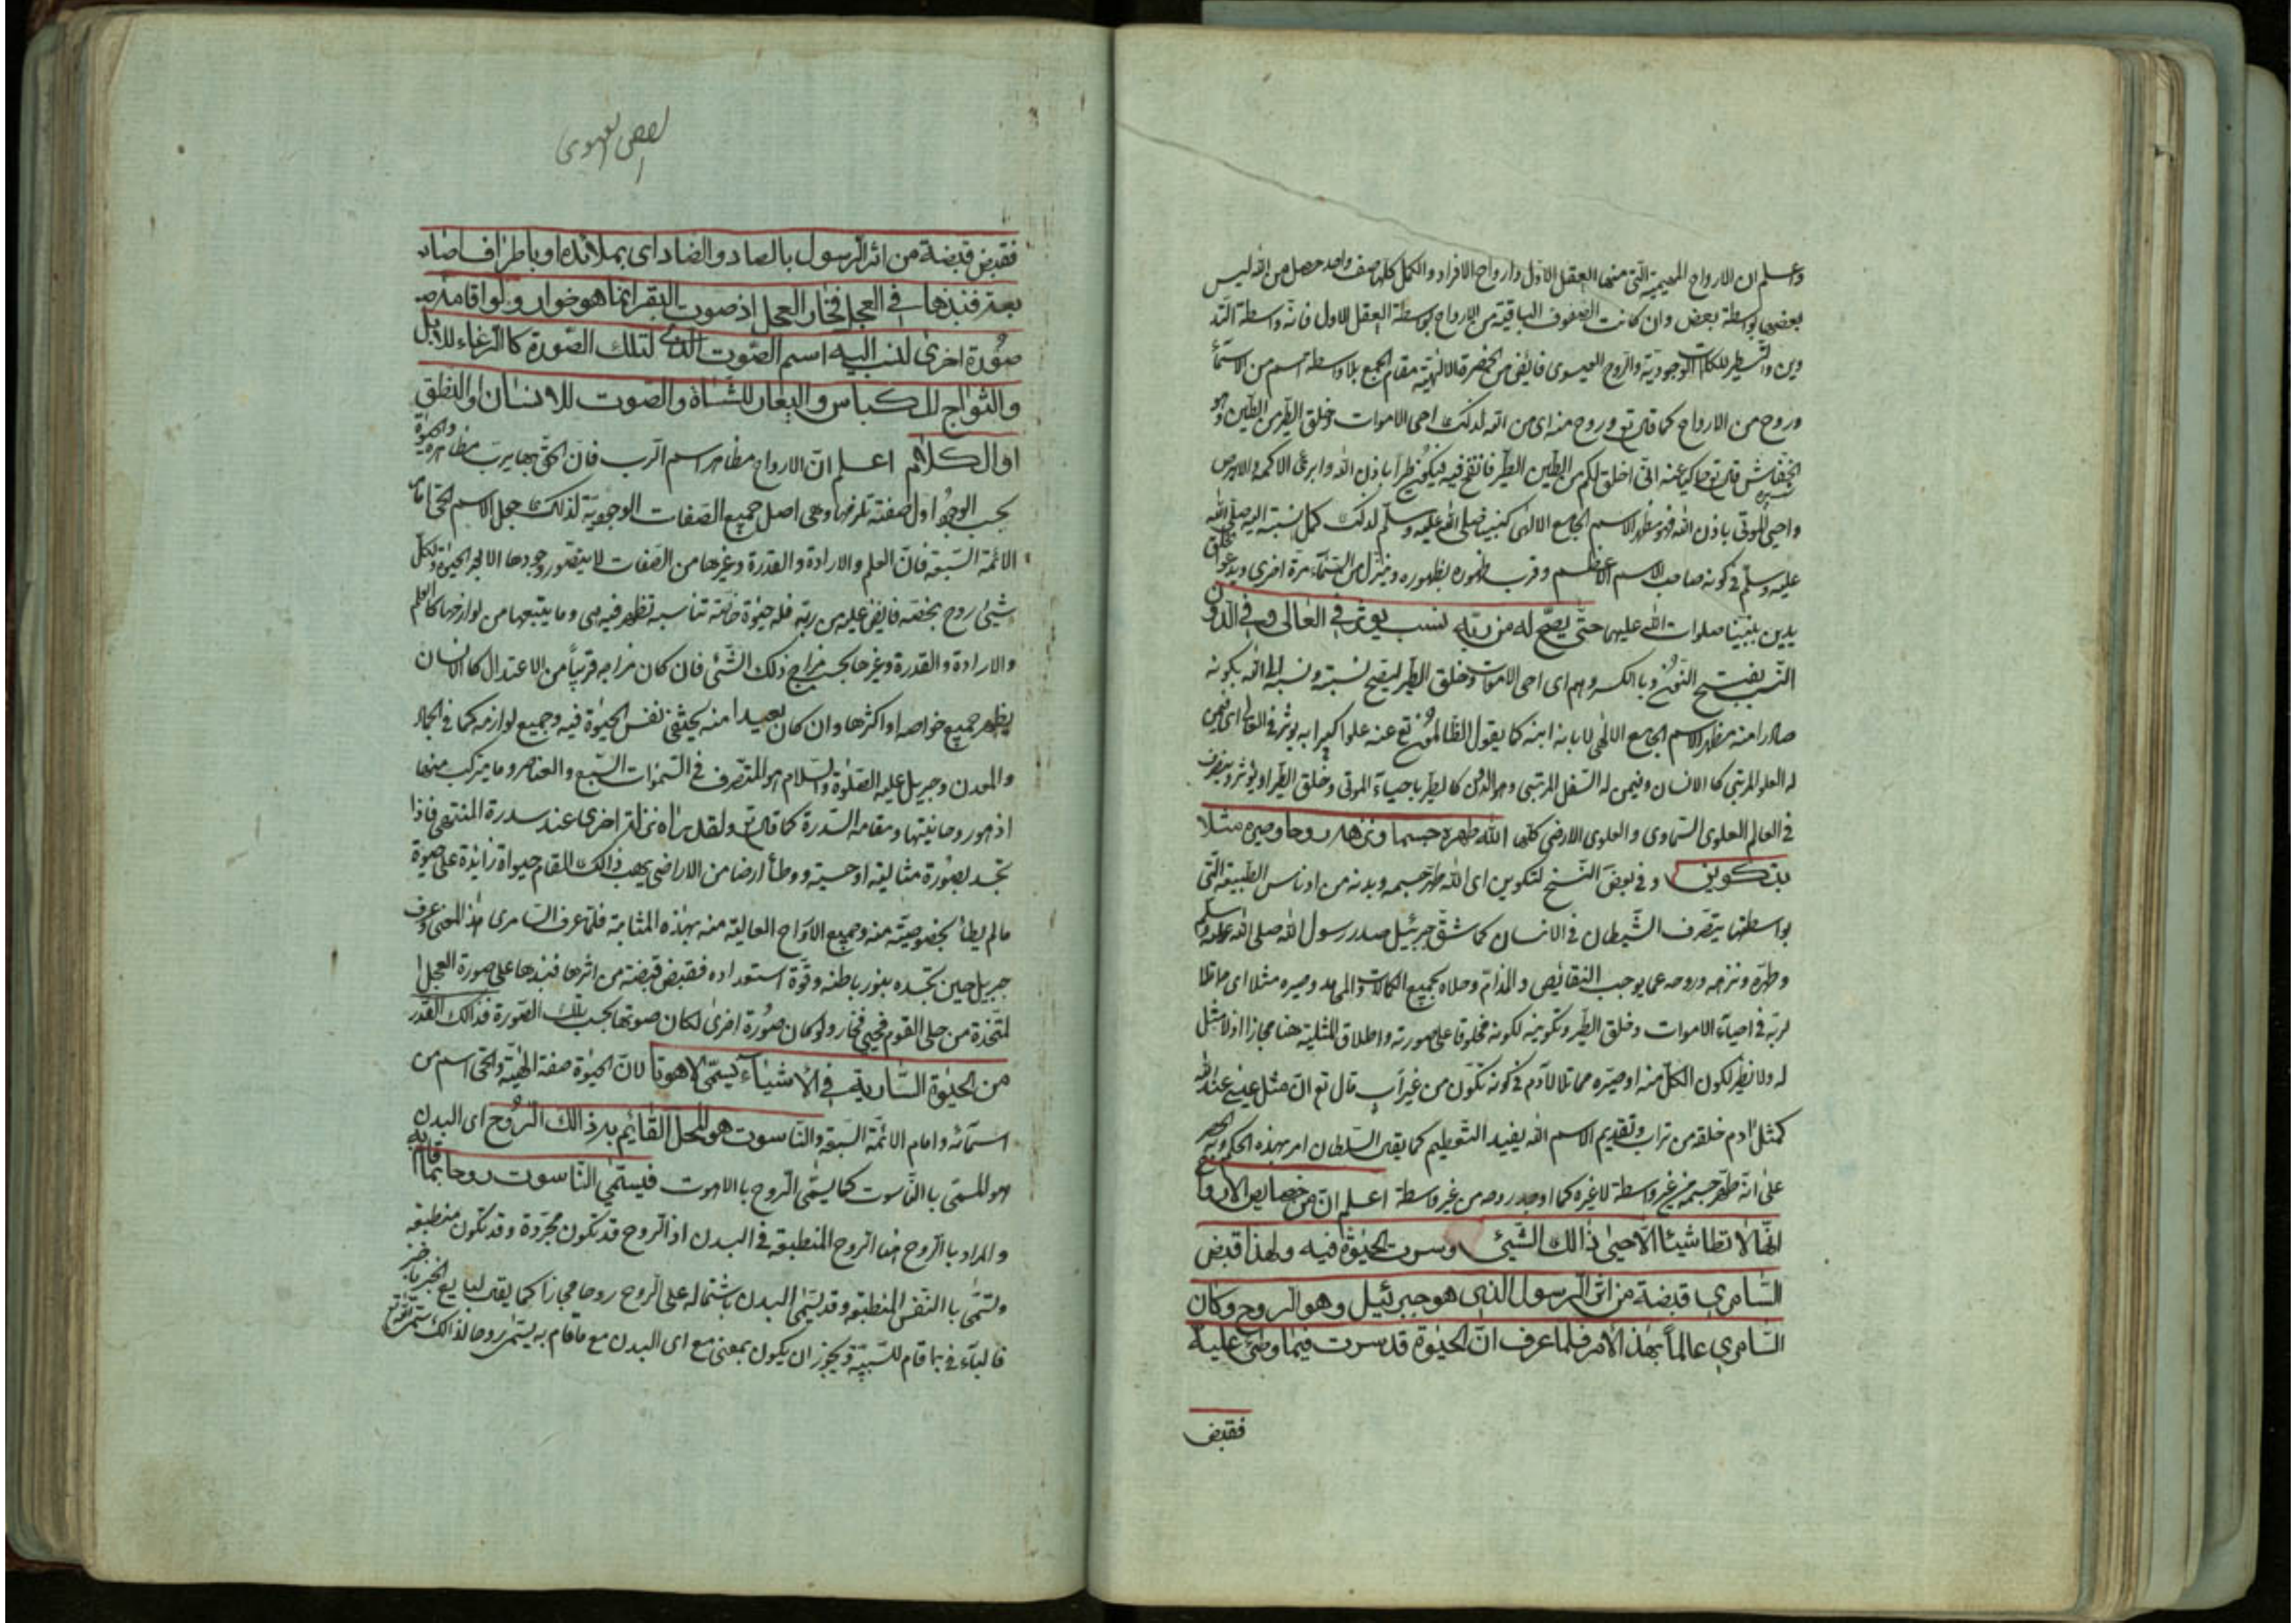 واعلم ان الارواح المهيمية التى منها العقل الاول وارواح الافراد والكمل كلها صف واحد حصل من الله ليس
بعضها بواسطة بعض وان كانت الصفوف الباقية من الارواح بواسطة العقل الاول فانه واسطة التد
وين والتسطير للكلمات الوجودية والروح العيسوى فايض من الحضرة الالهية مقام الجمع بلا واسطة اسم من الاسماء
وروح من الارواح كما قال تع وروح منه اى من الله لذلك احى الاموات وخلق الطير من الطين وهو
الخفاش قال تع حاكيا عنه انى اخلق لكم من الطين الطير فانفخ فيه فيكون طيرا باذن الله وابرئ الاكمه والابرص
واحيى الموتى باذن الله فهو مظهر الاسم الجامع الالهى كنبينا صلى الله عليه وسلم لذلك كمل نسبته اليه صلى الله
عليه وسلم فى كونه صاحب الاسم الاعظم وقرب ظهوره بظهوره وينزل من السماء مرة اخرى ويدعوا الخلق
بدين نبينا صلوات الله عليهما حتى يصح له من ربه نسب به يؤثر فى العالى وفى الدون
النسب بفتح النون وبالكسر وهم اى احى الاموات وخلق الطير ليصح نسبته ونسبه الى الله بكونه
صادرا منه مظهرا للاسم الجامع الالهى لا بانه ابنه كما يقول الظالمون تع عنه علوا كبيرا به يؤثر فى العالى اى فيمن
له العلو المرتبى كالانسان وفيمن له السفل المرتبى وهو الدون كالطير باحياء الموتى وخلق الطير او يؤثر ويتصرف
فى العالم العلوى السماوى والعلوى الارضى كلها الله طهره جسما ونزهه روحا وصيره مثلا
بتكوين وفى بعض النسخ لتكوين اى الله طهر جسمه وبدنه من ادناس الطبيعة التى
بواسطتها يتصرف الشيطان فى الانسان كما شق جبرئيل صدر رسول الله صلى الله عليه وسلم
وطهره ونزهه وروحه عما يوجب النقائص والمذام وحلاه بجميع الكمالات والمحامد وصيره مثلا اى مماثلا
لربه فى احياء الاموات وخلق الطير وتكوينه لكونه مخلوقا على صورته واطلاق المثلية هنا مجازا اذ لا مثل
له ولا نظير لكون الكل منه او صيره مماثلا لآدم فى كونه تكون من غير اب قال تع ان مثل عيسى عند الله
كمثل ادم خلقه من تراب وتقديم الاسم الله يفيد التعظيم كما يقال السلطان امر بهذه الحكم
على انه طهر جسمه من غير واسطة لا غيره كما اوجد روحه من غير واسطة اعلم ان من خصايص الارواح
انها لا تطأ شيئا الا حيى ذالك الشيئ وسرت الحيوة فيه ولهذا قبض
السامرى قبضة من اثر الرسول الذى هو جبرئيل وهو الروح وكان
السامرى عالما بهذا الامر فلما عرف ان الحيوة قد سرت فيما وطئ عليه
فقبض
فقبض قبضة من اثر الرسول بالصاد والضاد اى بملأ يده او باطراف اصابعه
فنبذها فى العجل فخار العجل اذ صوت البقر انما هو خوار ولو اقامه
صورة اخرى لنسب اليه اسم الصوت الذى لتلك الصورة كالرغاء للابل
والثواج للكباش واليعار للشاة والصوت للانسان او النطق
او الكلام اعلم ان الارواح مظاهر اسم الرب فان الحق بها يرب مظاهره والحيوة
بحسب الوجود اول صفة تلزمها وهى اصل جميع الصفات الوجودية لذلك جعل الاسم الحى امام
الائمة السبعة فان العلم والارادة والقدرة وغيرها من الصفات لا يتصور وجودها الا بعد الحيوة ولكل
شيئ روح بخصه فايض عليه من ربه فله حيوة خاصة تناسبه تظهر فيه هى وما يتبعها من لوازمها كالعلم
والارادة والقدرة وغيرها بحسب مزاج ذلك الشئ فان كان مزاجه قريبا من الاعتدال كالانسان
يظهر جميع خواصه او اكثرها وان كان بعيدا منه يختفى نفس الحيوة فيه وجميع لوازمه كما فى الجماد
والمعدن وجبريل عليه الصلوة والسلام هو المتصرف فى السموات السبع والعناصر وما يتركب منها
اذ هو روحانيتها ومقامه السدرة كما قال تع ولقد رآه نزلة اخرى عند سدرة المنتهى فاذا
تجسد بصورة مثالية او حسية ووطأ ارضا من الاراضى يهب ذالك المقام حيواة زائدة على حيوة
ما لم يطأ بخصوصيته منه وجميع الارواح العالية منه بهذه المثابة فلما عرف السامرى هذا المعنى وعرف
جبريل حين تجسده بنور باطنه وقوة استعداده فقبض قبضة من اثرها فنبذها على صورة العجل
المتخذة من حلى القوم فحيى فخار ولو كان صورة اخرى لكان صوتها بحسب تلك الصورة فذالك القدر
من الحيوة السارية فى الاشياء يسمى لاهوتا لان الحيوة صفة الهية والحى اسم من
اسمائه وامام الائمة السبعة والناسوت هو المحل القائم به ذالك الروح اى البدن
هو المسمى بالناسوت كما يسمى الروح باللاهوت فيسمى الناسوت روحا بما قام به
والمراد بالروح هنا الروح المنطبقة فى البدن اذ الروح قد تكون مجردة وقد تكون منطبقة
وتسمى بالنفس المنطبعة وقد يسمى البدن باشتماله على الروح روحا مجازا كما يقال لبايع الخبز يا خبز
فالباء فى بما قام للسببية ويجوز ان يكون بمعنى مع اى البدن مع ما قام به يسمى روحا لذالك